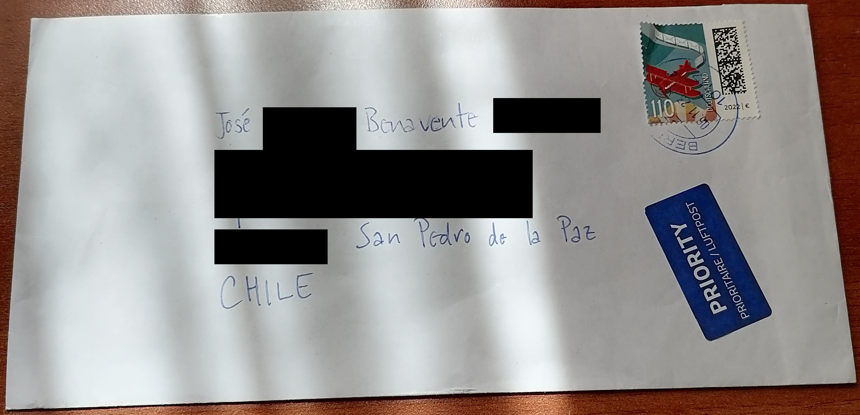 José Benavente
San Pedro de la Paz
CHILE
110
2022 | €
PRIORITY
PRIORITAIRE / LUFTPOST